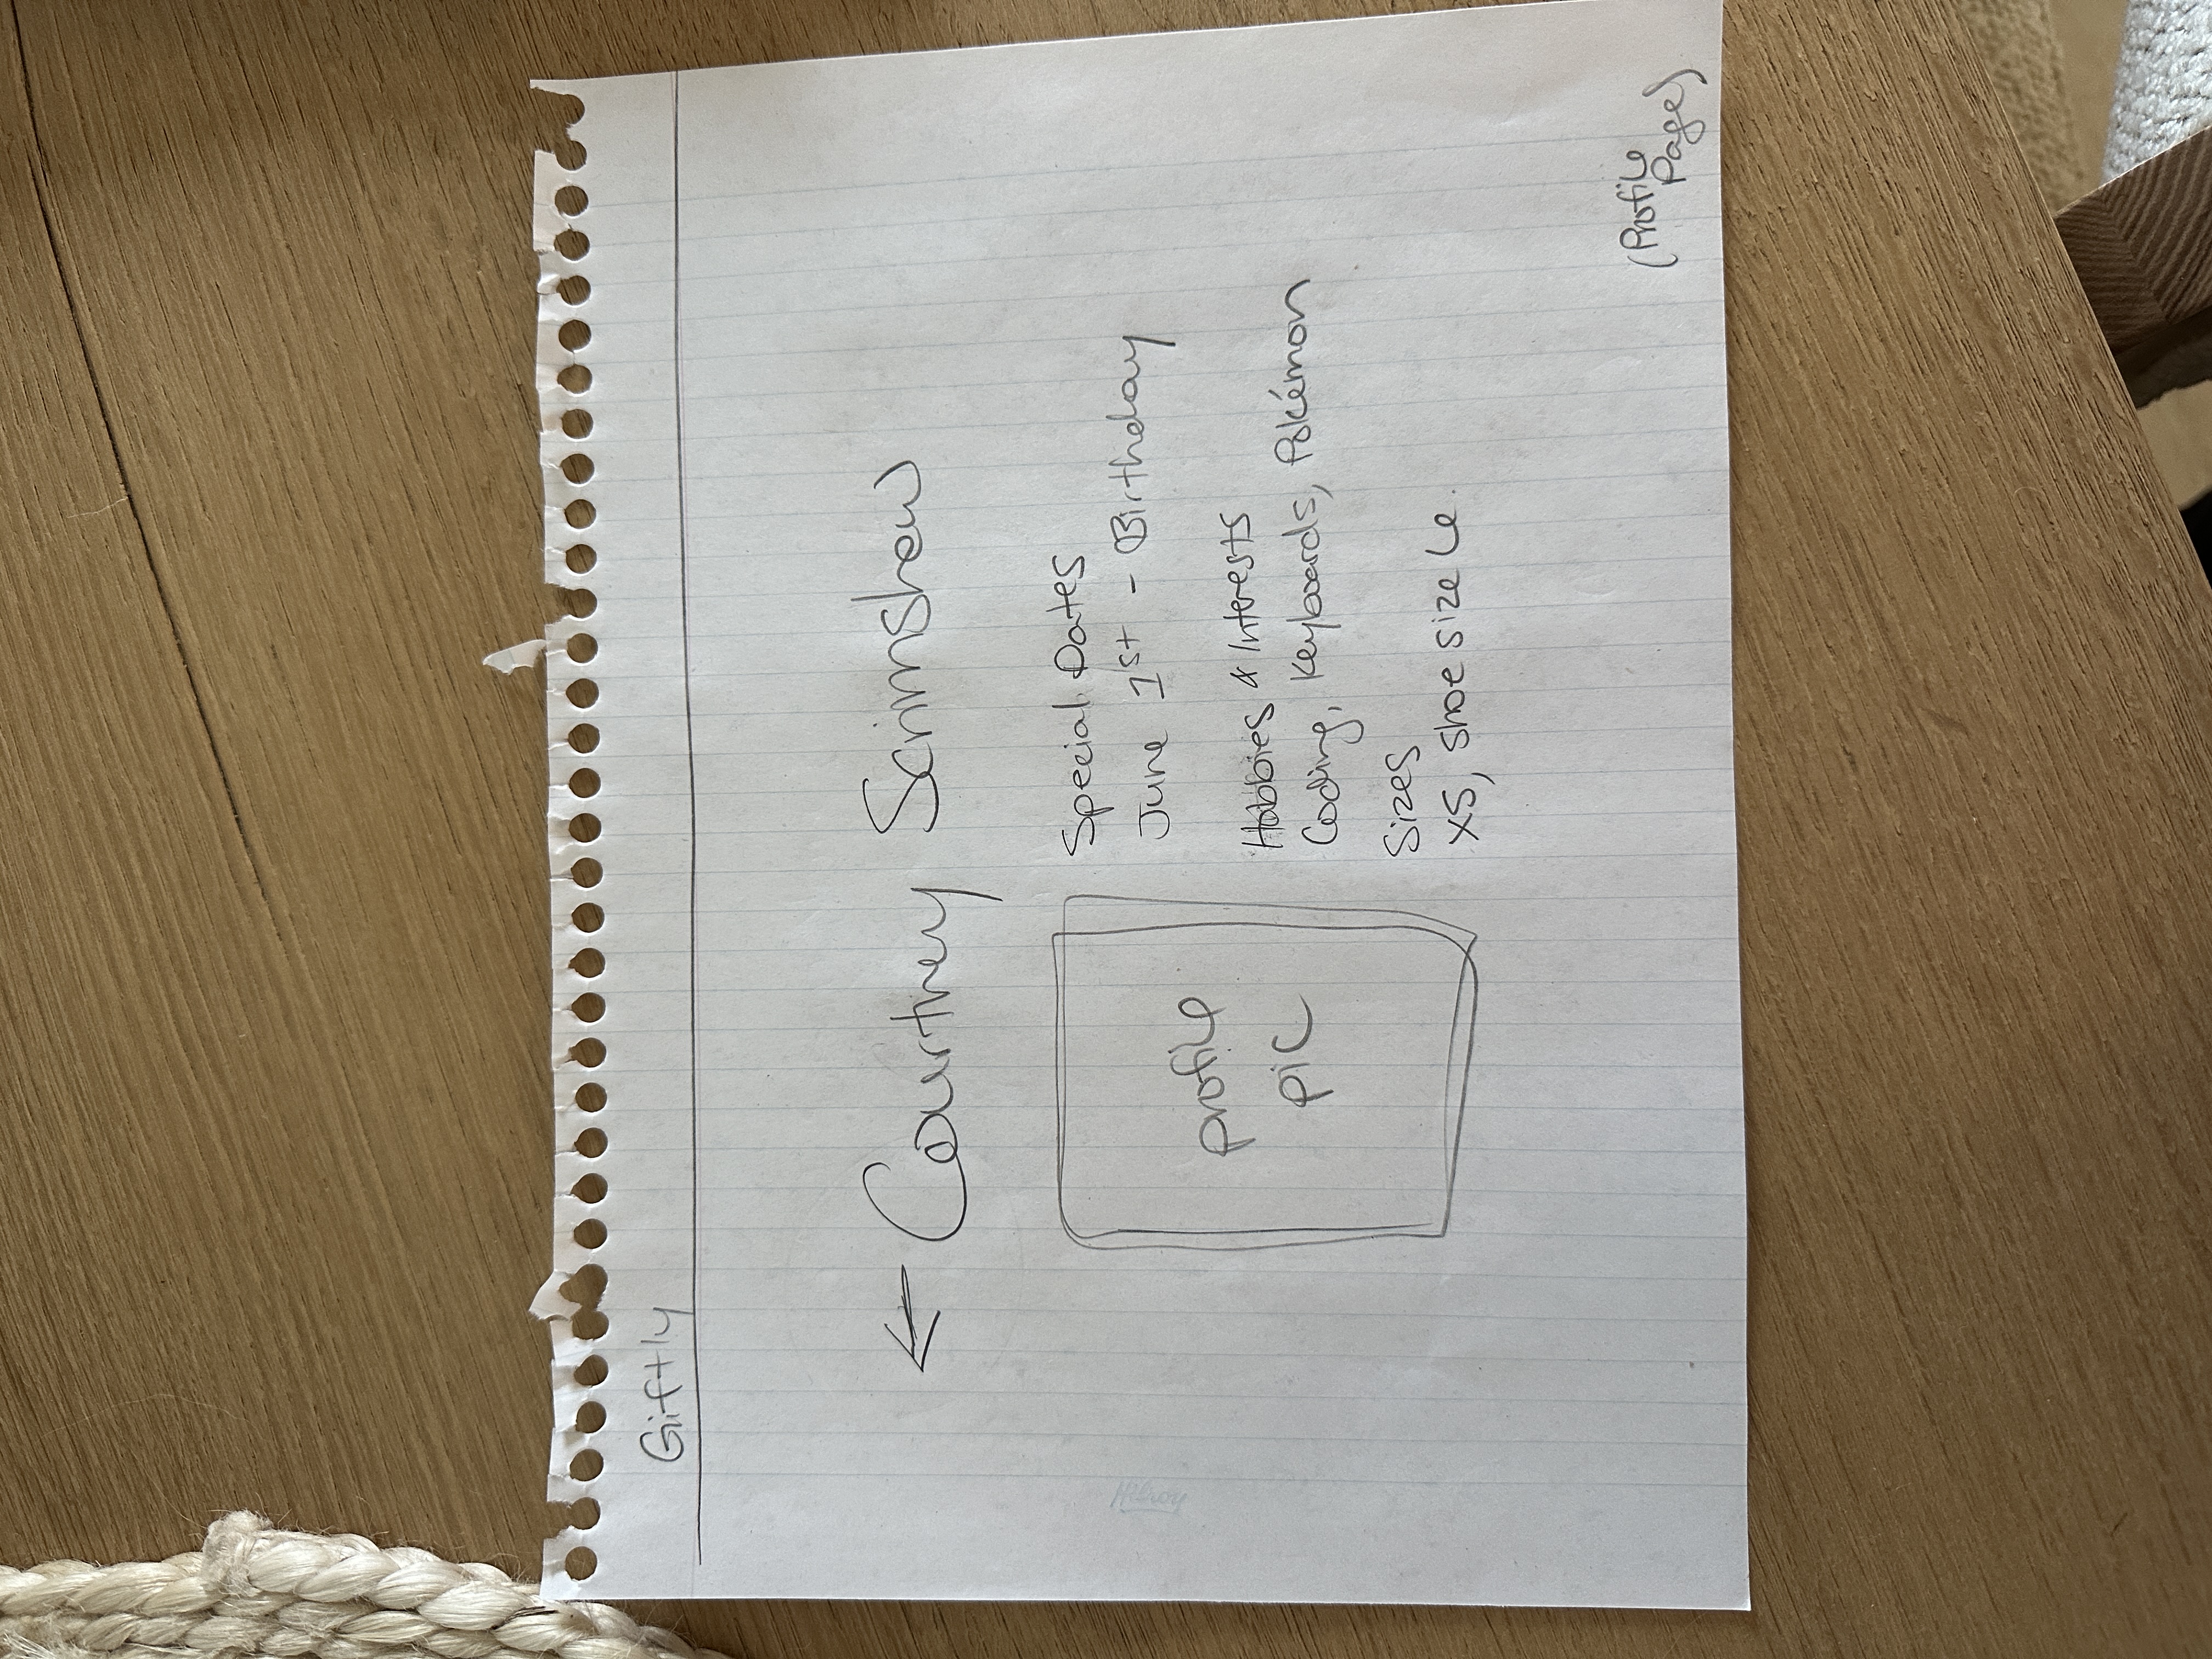 Giftly
← Courtney Scrimshew
profile
pic
Special Dates
June 1st - Birthday
Hobbies & Interests
Coding, Keyboards, Pokémon
Sizes
XS, shoe size 6.
(Profile
Page)